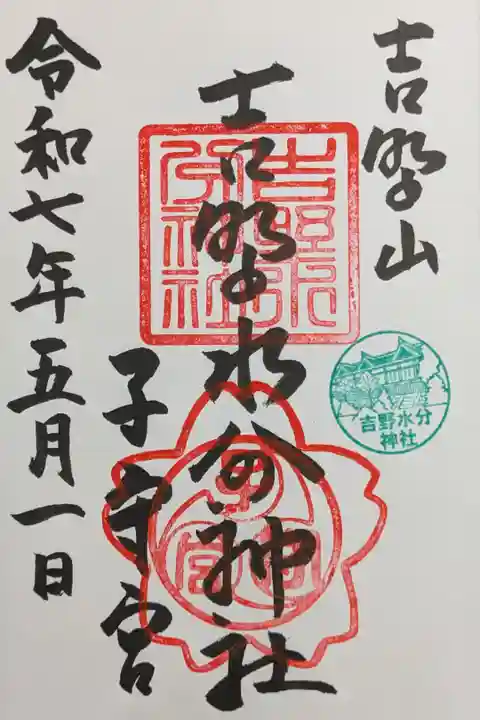 吉野山
吉野水分神社
子守宮
令和七年五月一日
吉野水分神社
吉野水
分神社